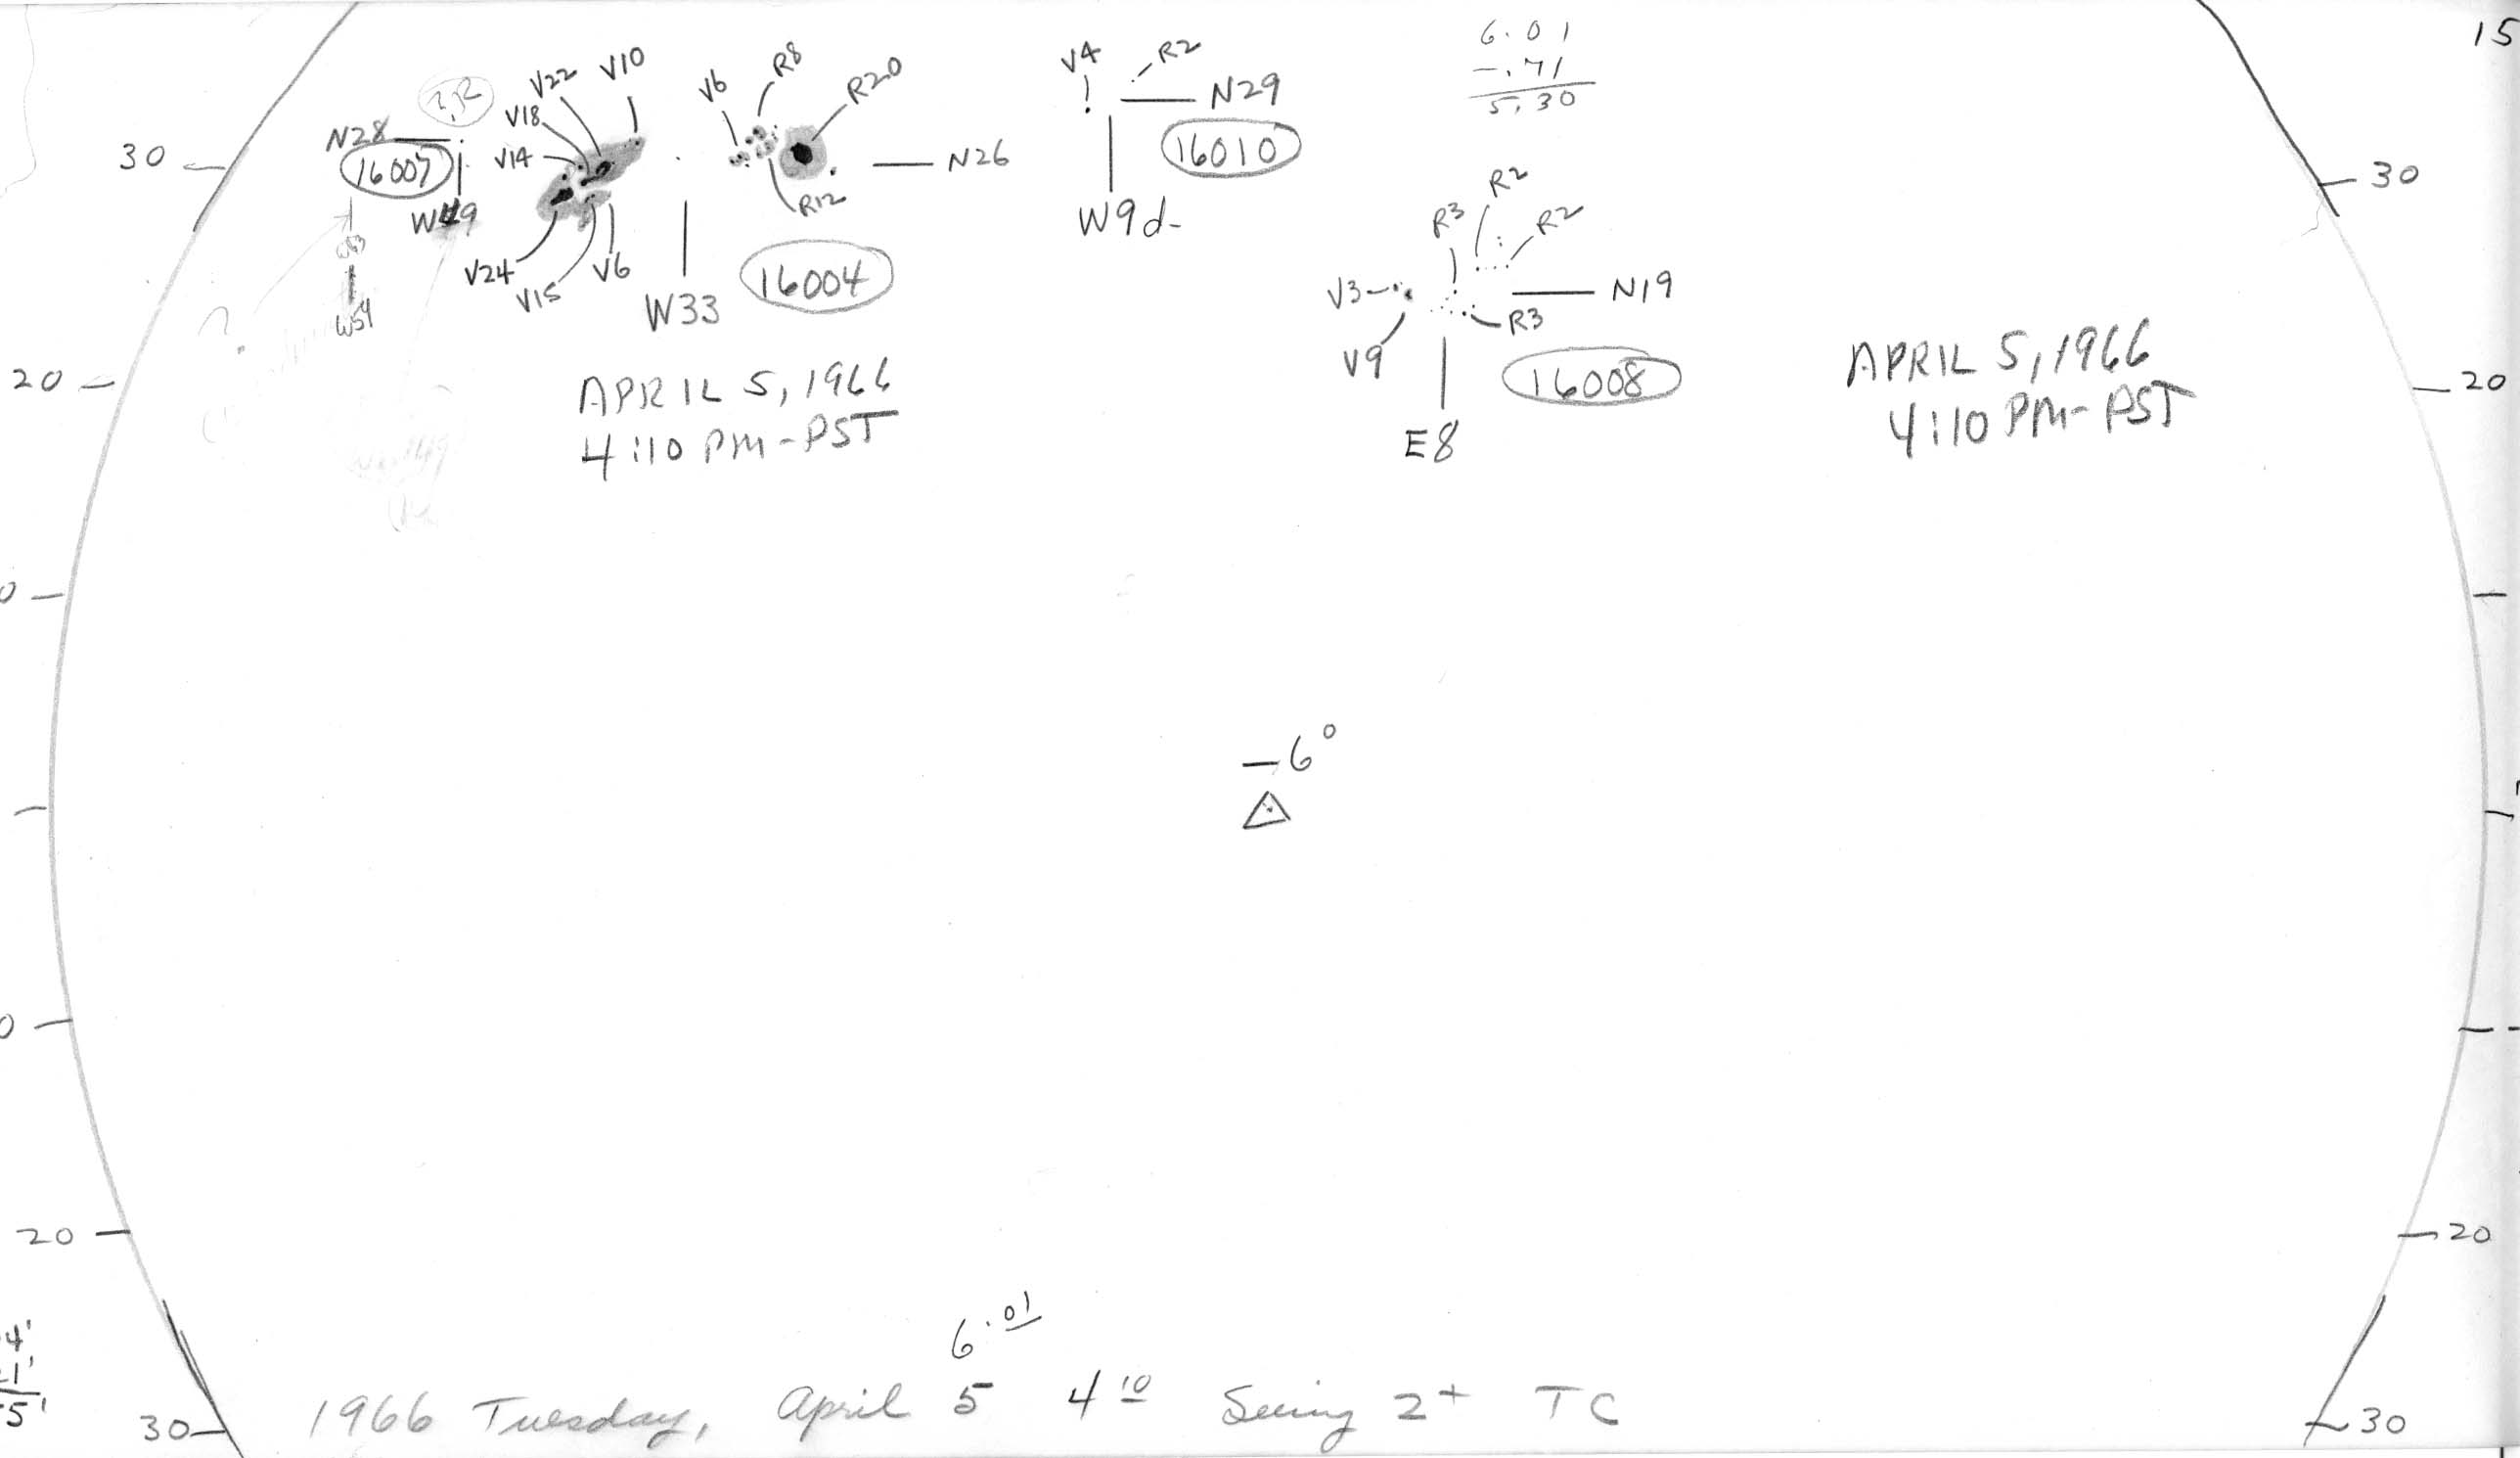 15
6.01
-.71
5.30
V22
V10
V6
R8
R20
V4
R2
N29
?,2
V18
N28
16007
V14
N26
16010
30
30
R12
W9d-
R2
R3
R2
V24
V15
V6
W33
16004
V3
N19
R3
V9
16008
E8
20
APRIL 5, 1966
4:10 PM-PST
APRIL 5, 1966
4:10 PM-PST
20
0
-6°
0
20
20
4'
1'
5'
6.01
30
1966 Tuesday, April 5 4 10 Seeing 2+ TC
30